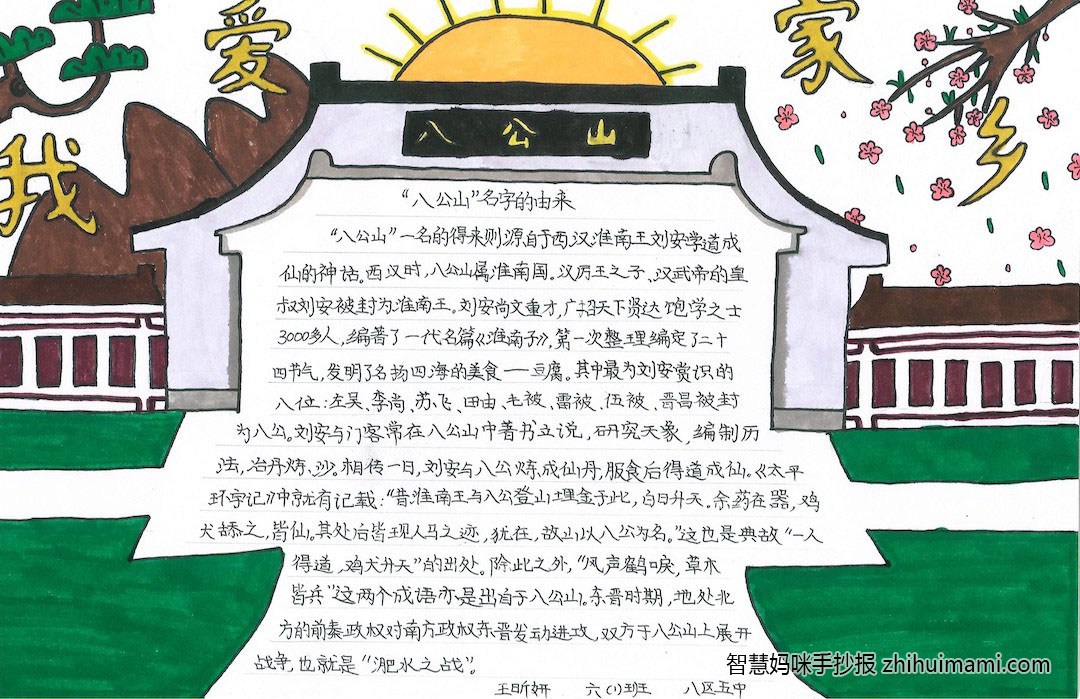 我爱家乡
八公山
“八公山”名字的由来
“八公山”一名的得来则源自于西汉淮南王刘安学道成
仙的神话。西汉时,八公山属淮南国。汉厉王之子、汉武帝的皇
叔刘安被封为淮南王。刘安尚文重才,广招天下贤达饱学之士
3000多人,编著了一代名篇《淮南子》,第一次整理编定了二十
四节气,发明了名扬四海的美食——豆腐。其中最为刘安赏识的
八位:左吴、李尚、苏飞、田由、毛被、雷被、伍被、晋昌被封
为八公。刘安与门客常在八公山中著书立说,研究天象,编制历
法,冶丹炼沙。相传一日,刘安与八公炼成仙丹,服食后得道成仙。《太平
环宇记》中就有记载:“昔淮南王与八公登山埋金于此,白日升天。余药在器,鸡
犬舔之,皆仙。其处后皆现人马之迹,犹在,故山以八公为名。”这也是典故“一人
得道,鸡犬升天”的出处。除此之外,“风声鹤唳,草木
皆兵”这两个成语亦是出自于八公山。东晋时期,地处北
方的前秦政权对南方政权东晋发动进攻,双方于八公山上展开
战争,也就是“淝水之战”。
王昕妍 六(1)班 八区五中
智慧妈咪手抄报 zhihuimami.com